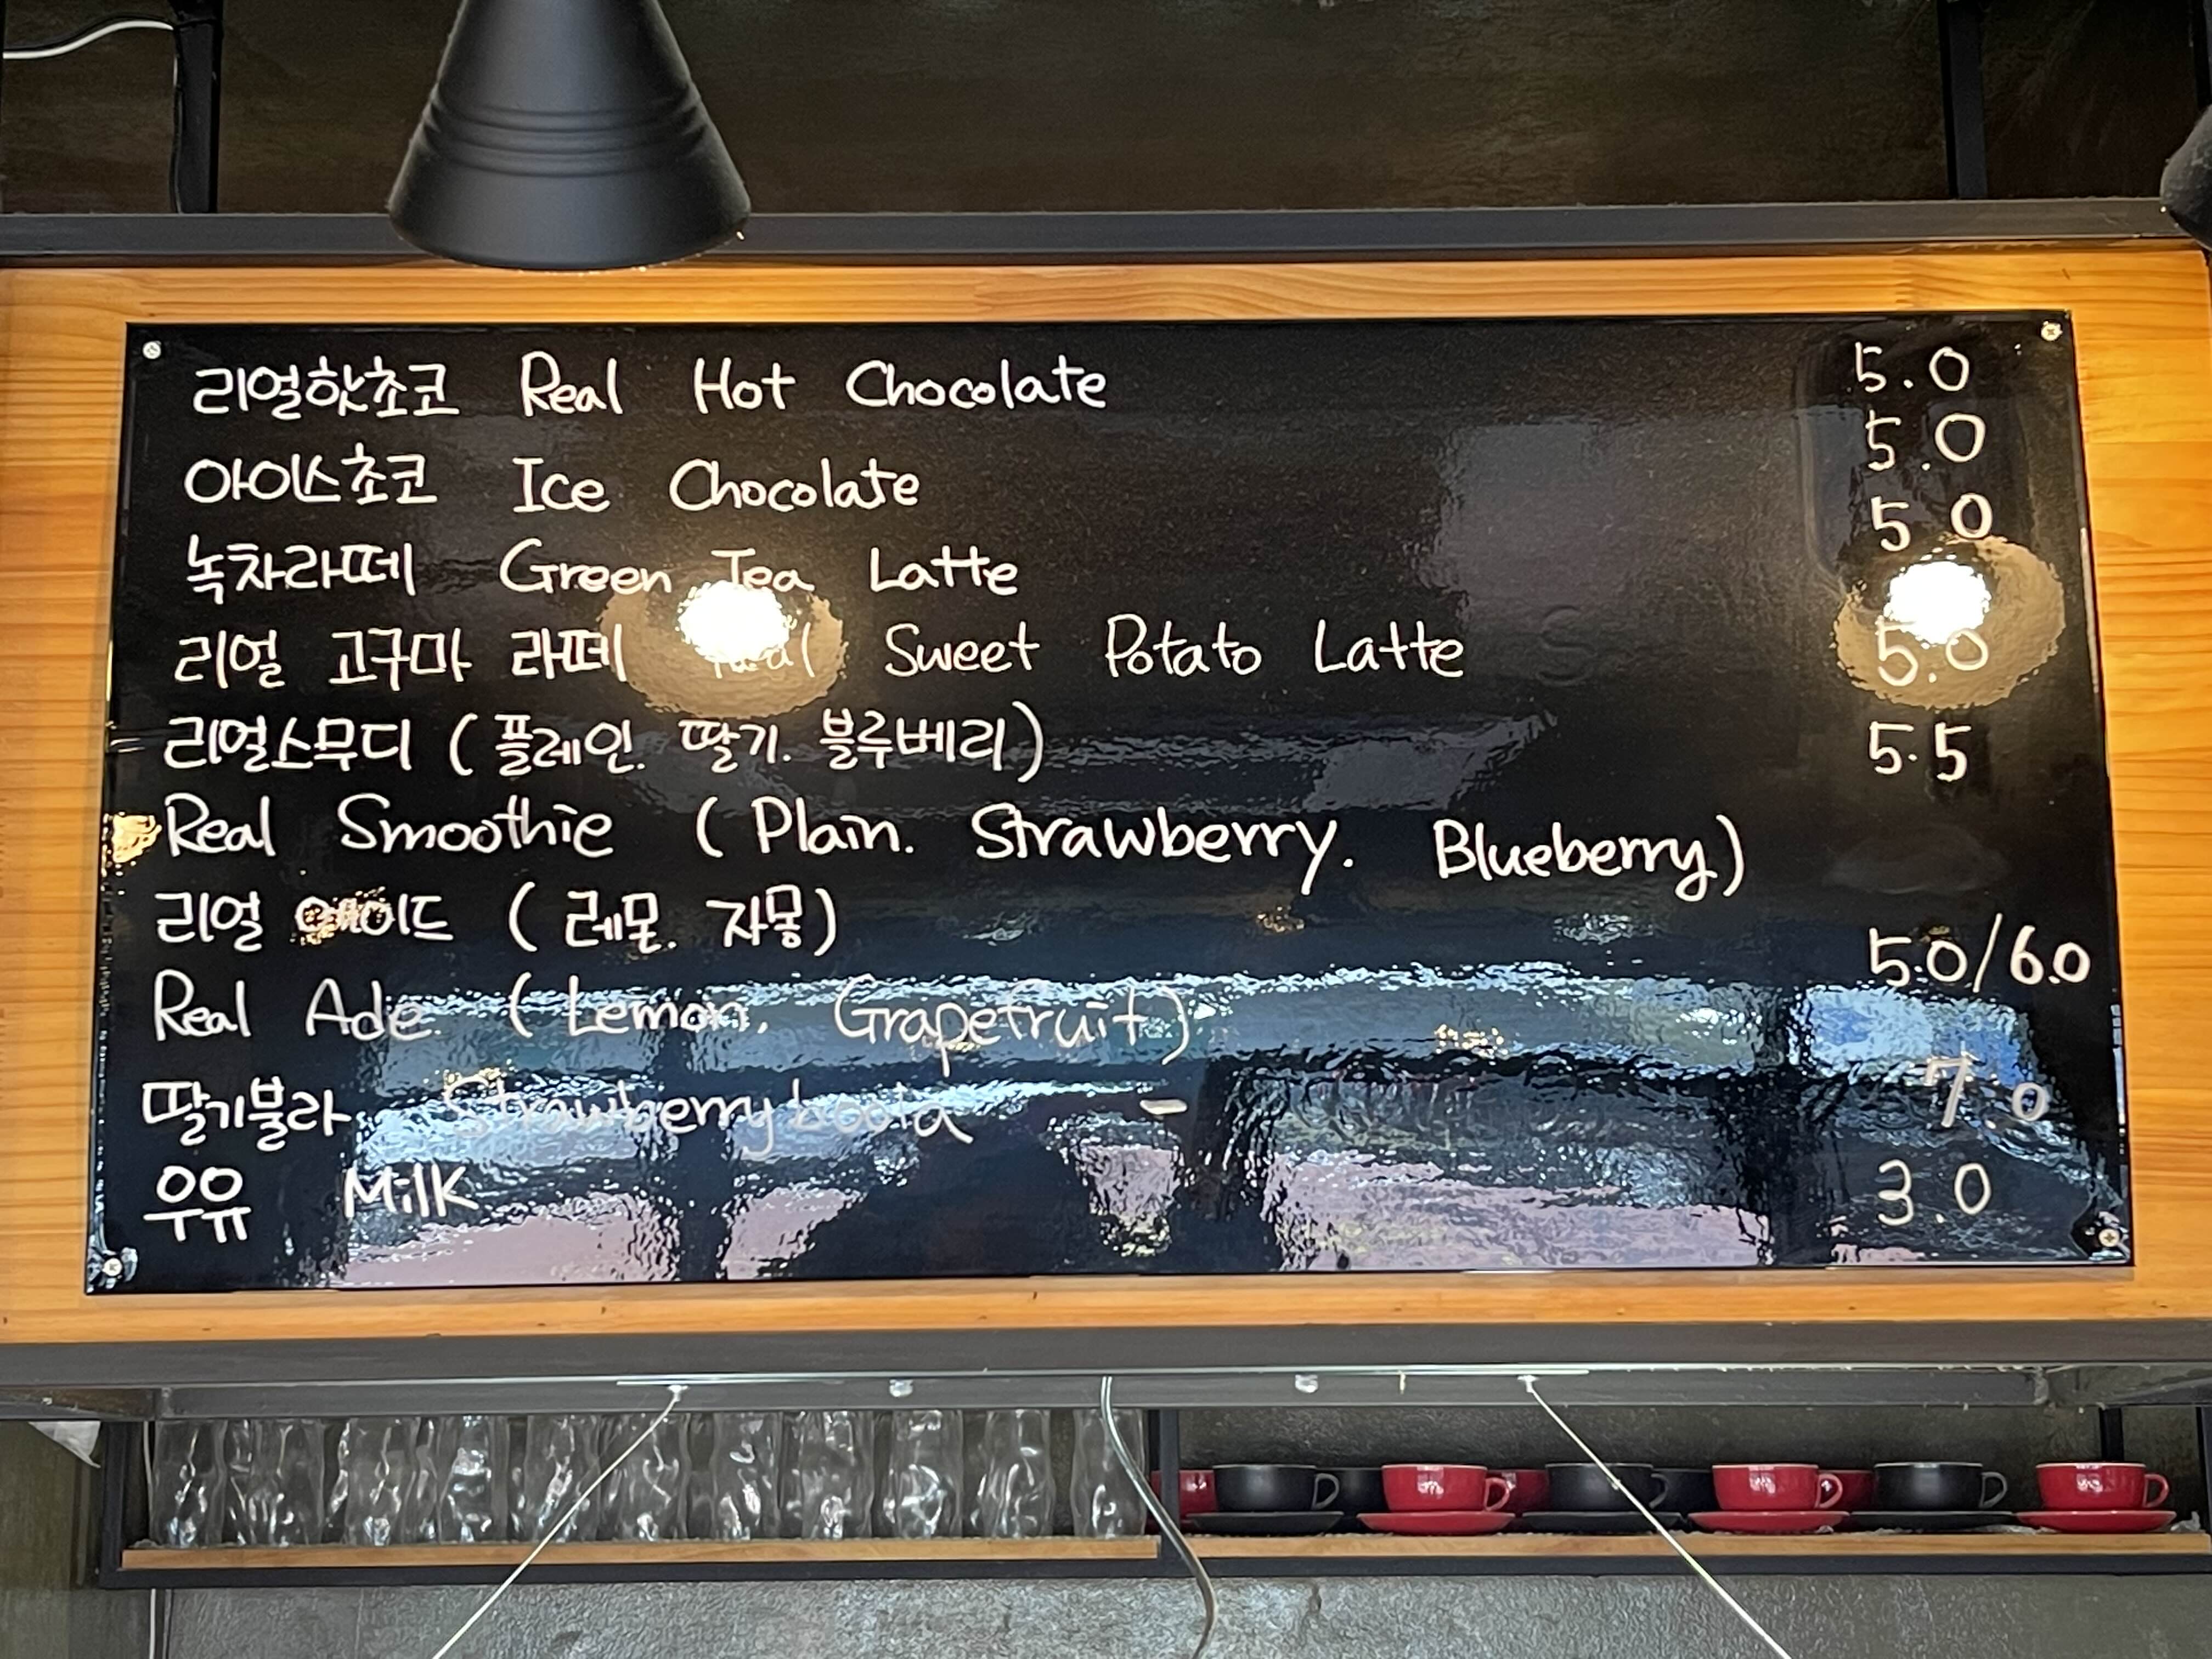 리얼핫초코 Real Hot Chocolate 5.0
아이스초코 Ice Chocolate 5.0
녹차라떼 Green Tea Latte 5.0
리얼 고구마 라떼 Real Sweet Potato Latte 5.0
리얼스무디 (플레인. 딸기. 블루베리) 5.5
Real Smoothie (Plain. Strawberry. Blueberry)
리얼 에이드 (레몬. 자몽) 5.0/6.0
Real Ade (Lemon. Grapefruit)
딸기불라 Strawberry - 7.0
우유 Milk 3.0